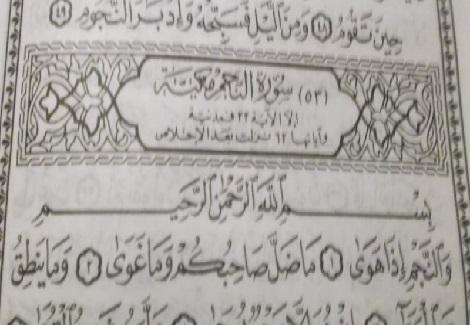 حِينَ تَقُومُ ٤٨ وَمِنَ اللَّيْلِ فَسَبِّحْهُ وَإِدْبَارَ النُّجُومِ ٤٩
(٥٣) سُورَةُ النَّجْمِ مَكِّيَّة
إلا الآية ٣٢ فمدنية
وآياتها ٦٢ نزلت بعد الإخلاص
بِسْمِ اللَّهِ الرَّحْمَٰنِ الرَّحِيمِ
وَالنَّجْمِ إِذَا هَوَىٰ ١ مَا ضَلَّ صَاحِبُكُمْ وَمَا غَوَىٰ ٢ وَمَا يَنطِقُ